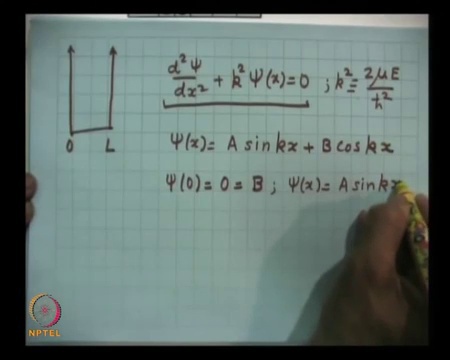 d²Ψ/dx² + k² Ψ(x) = 0 ; k² = 2μE/ħ²
Ψ(x) = A sin kx + B cos kx
Ψ(0) = 0 = B ; Ψ(x) = A sin kx
0 L
NPTEL